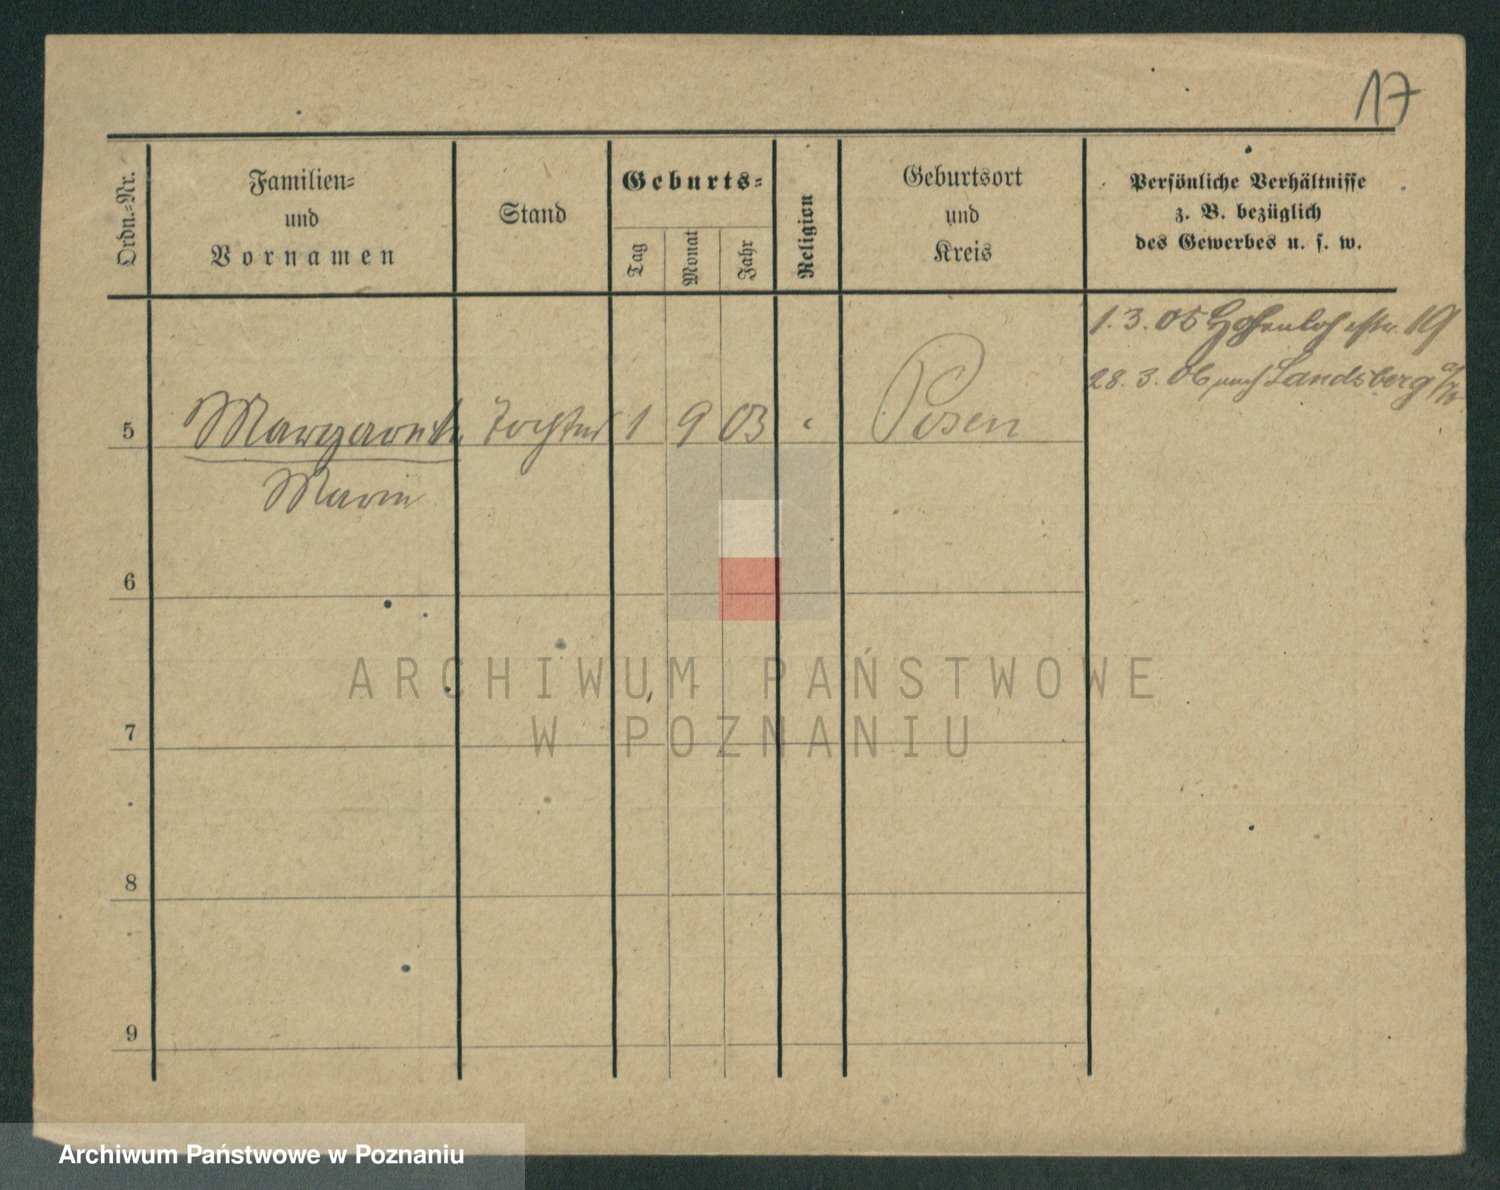 17
Ordn.-Nr.
Familien-
und
Vornamen
Stand
Geburts-
Tag
Monat
Jahr
Religion
Geburtsort
und
Kreis
Persönliche Verhältnisse
z. B. bezüglich
des Gewerbes u. s. w.
1. 3. 05 Hohenlohestr. 19
28. 3. 06 nach Landsberg a/W.
5 Margareth Tochter 1 9 03 " Posen
Marie
6
7
8
9
ARCHIWUM PAŃSTWOWE
W POZNANIU
Archiwum Państwowe w Poznaniu